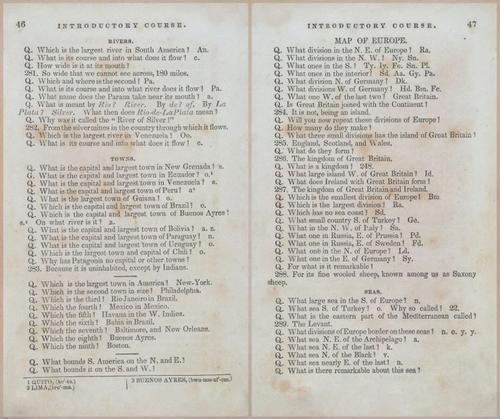 46 INTRODUCTORY COURSE.
RIVERS.
Q. Which is the largest river in South America? An.
Q. What is its course and into what does it flow? c.
Q. How wide is it at its mouth?
281. So wide that we cannot see across, 180 miles.
Q. Which and where is the second? Pa.
Q. What is its course and into what river does it flow? Pa.
Q. What name does the Parana take near its mouth? a.
Q. What is meant by Rio? River. By de? of. By La
Plata? Silver. What then does Rio-de-La Plata mean?
Q. Why was it called the "River of Silver?"
282. From the silver mines in the country through which it flows.
Q. Which is the largest river in Venezuela? Oo.
Q. What is its course and into what does it flow? c.
TOWNS.
Q. What is the capital and largest town in New Grenada? s.
Q. What is the capital and largest town in Ecuador? o.¹
Q. What is the capital and largest town in Venezuela? s.
Q. What is the capital and largest town of Peru? a.²
Q. What is the largest town of Guiana? o.
Q. Which is the capital and largest town of Brazil? o.
Q. Which is the capital and largest town of Buenos Ayres?
s.³ On what river is it? a.
Q. What is the capital and largest town of Bolivia? a. s.
Q. What is the capital and largest town of Paraguay? n.
Q. What is the capital and largest town of Uruguay? o.
Q. Which is the largest town and capital of Chili? o.
Q. Why has Patagonia no capital or other towns?
283. Because it is uninhabited, except by Indians.
Q. Which is the largest town in America? New-York.
Q. Which is the second town in size? Philadelphia.
Q. Which is the third? Rio Janeiro in Brazil.
Q. Which the fourth? Mexico in Mexico.
Q. Which the fifth? Havana in the W. Indies.
Q. Which the sixth? Bahia in Brazil.
Q. Which the seventh? Baltimore, and New Orleans.
Q. Which the eighth? Buenos Ayres.
Q. Which the ninth? Boston.
Q. What bounds S. America on the N. and E.?
Q. What bounds it on the S. and W.?
1 QUITO, (ke'-to.)
2 LIMA,
3 BUENOS AYRES,
INTRODUCTORY COURSE. 47
MAP OF EUROPE.
Q. What division in the N. E. of Europe? Ra.
Q. What divisions in the N. W.? Ny. Sn.
Q. What ones in the S.? Ty. Iy. Fe. Sn. Pl.
Q. What ones in the interior? Sd. Aa. Gy. Pa.
Q. What division N. of Germany? Dk.
Q. What divisions W. of Germany? Hd. Bm. Fe.
Q. What one W. of the last two? Great Britain.
Q. Is Great Britain joined with the Continent?
284. It is not, being an island.
Q. Will you now repeat these divisions of Europe?
Q. How many do they make?
Q. What three small divisions has the island of Great Britain?
285. England, Scotland, and Wales.
Q. What do they form?
286. The kingdom of Great Britain.
Q. What is a kingdom? 248.
Q. What large island W. of Great Britain? Id.
Q. What does Ireland with Great Britain form?
287. The kingdom of Great Britain and Ireland.
Q. Which is the smallest division of Europe? Bm
Q. Which is the largest division? Ra.
Q. Which has no sea coast? Sd.
Q. What small country S. of Turkey? Ge.
Q. What in the N. W. of Italy? Sa.
Q. What one in Russia, E. of Prussia? Pd.
Q. What one in Russia, E. of Sweden? Fd.
Q. What one in the N. of Europe? Ld.
Q. What one in the E. of Germany? Sy.
Q. For what is it remarkable?
288. For its fine wooled sheep, known among us as Saxony
sheep.
SEAS.
Q. What large sea in the S. of Europe? n.
Q. What sea S. of Turkey? o. Why so called? 22.
Q. What is the eastern part of the Mediterranean called?
289. The Levant.
Q. What divisions of Europe border on these seas? n. c. y. y.
Q. What sea N. E. of the Archipelago? a.
Q. What sea N. E. of the last? k.
Q. What sea N. of the Black? v.
Q. What sea nearly E. of the last? n.
Q. What is there remarkable about this sea?